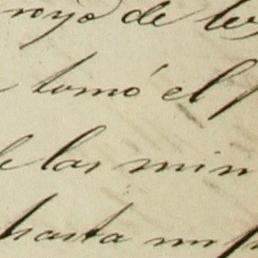 royo de
tomó el
de las min
hasta mi